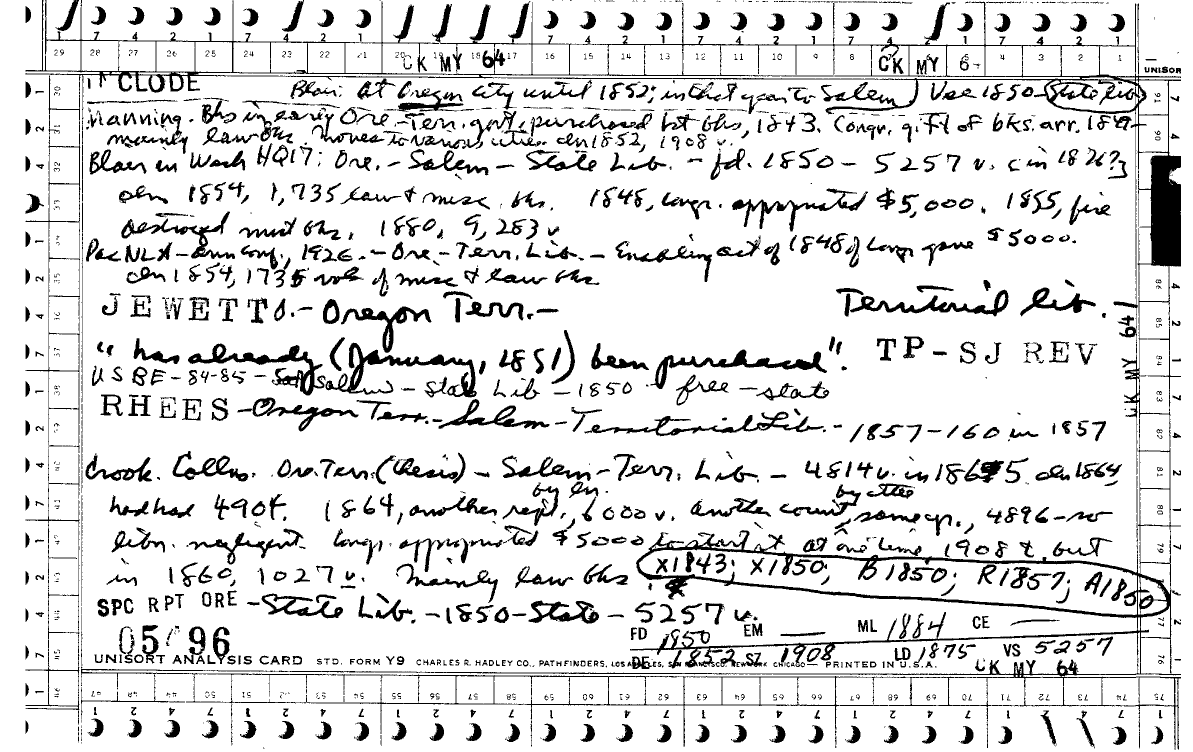 CK MY 64 CK MY 6-
UNISOR
CLODE Blair: At Oregon City until 1852; in that year to Salem Use 1850- State Lib
Manning. Bks in early Ore.-Terr. govt. purchased 1st bks, 1843. Congr. gift of bks. arr. 1849-
mainly law bks. moves to various cities. In 1852, 1908 v.
Blair in Wash HQ17: Ore. - Salem - State Lib. - fd. 1850 - 5257 v. [in 1876?]
In 1854, 1,735 law & misc. bks. 1848, Congr. appropriated $5,000. 1855, fire
destroyed most bks. 1880, 9,283 v.
Pac NLA - Ann Conf., 1926. - Ore. - Terr. Lib. - Enabling act of 1848 of Congr gave $5000.
In 1854, 1735 vols of misc & law bks
JEWETT - Oregon Terr. - Territorial lib. -
"has already (January, 1851) been purchased". TP-SJ REV
CK MY 64
USBE - 84-85 - Salem - State Lib - 1850 - free - state
RHEES - Oregon Terr. - Salem - Territorial Lib. - 1857 - 160 in 1857
Crook. Collns. Ore. Terr. (thesis) - Salem - Terr. Lib. - 4814 v. in 1865 In 1864,
had had 4904. 1864, another rept., by ln. 6000 v. another count, by cttee same yr., 4896 - so
libn. negligent. Congr. appropriated $5000 to start it at one time, 1908 v. but
in 1860, 1027 v. Mainly law bks. X1843; X1850; B1850; R1857; A1850
SPC RPT ORE - State Lib. - 1850 - State - 5257 v.
05 96
FD 1850 EM — ML 1884 CE —
DE 1852 SZ 1908 LD 1875 VS 5257
UNISORT ANALYSIS CARD STD. FORM Y9 CHARLES R. HADLEY CO., PATHFINDERS, LOS ANGELES, SAN FRANCISCO, NEW YORK CHICAGO — PRINTED IN U.S.A.
CK MY 64